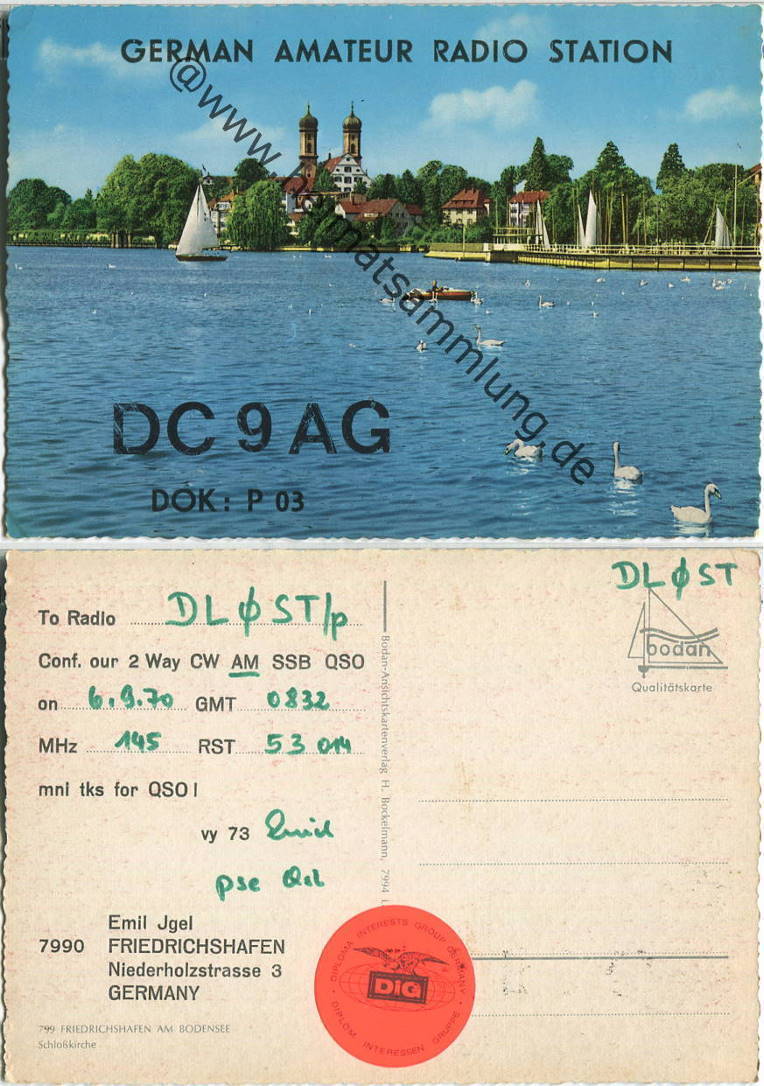 GERMAN AMATEUR RADIO STATION
@www.heimatsammlung.de
DC9AG
DOK: P 03
DLØST
To Radio DLØST/p
Conf. our 2 Way CW AM SSB QSO
on 6.9.70 GMT 0832
MHz 145 RST 53 014
mni tks for QSO!
vy 73 Emil
pse QSL
Emil Jgel
7990 FRIEDRICHSHAFEN
Niederholzstrasse 3
GERMANY
799 FRIEDRICHSHAFEN AM BODENSEE
Schloßkirche
bodan
Qualitätskarte
Bodan-Ansichtskartenverlag H. Bockelmann, 7994
DIPLOMA INTERESTS GROUP GERMANY
DIG
DIPLOM INTERESSEN GRUPPE